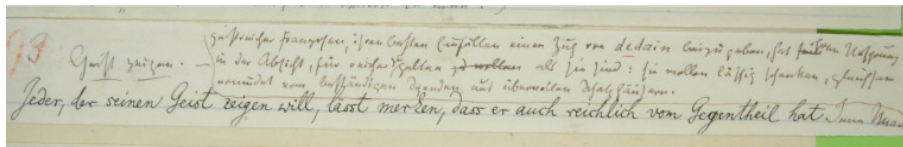 geistreicher Franzosen, ihren besten Einfällen einen Zug von dedain beizugeben, hat ihren Ursprung
98 Geist zeigen. — in der Absicht, für reicher zu gelten als sie sind: sie wollen lässig schenken, gleichsam
ermüdet vom beständigen Spenden aus übervollen Schatzhäusern.
Jeder, der seinen Geist zeigen will, lässt merken, dass er auch reichlich vom Gegentheil hat. Jene Unart